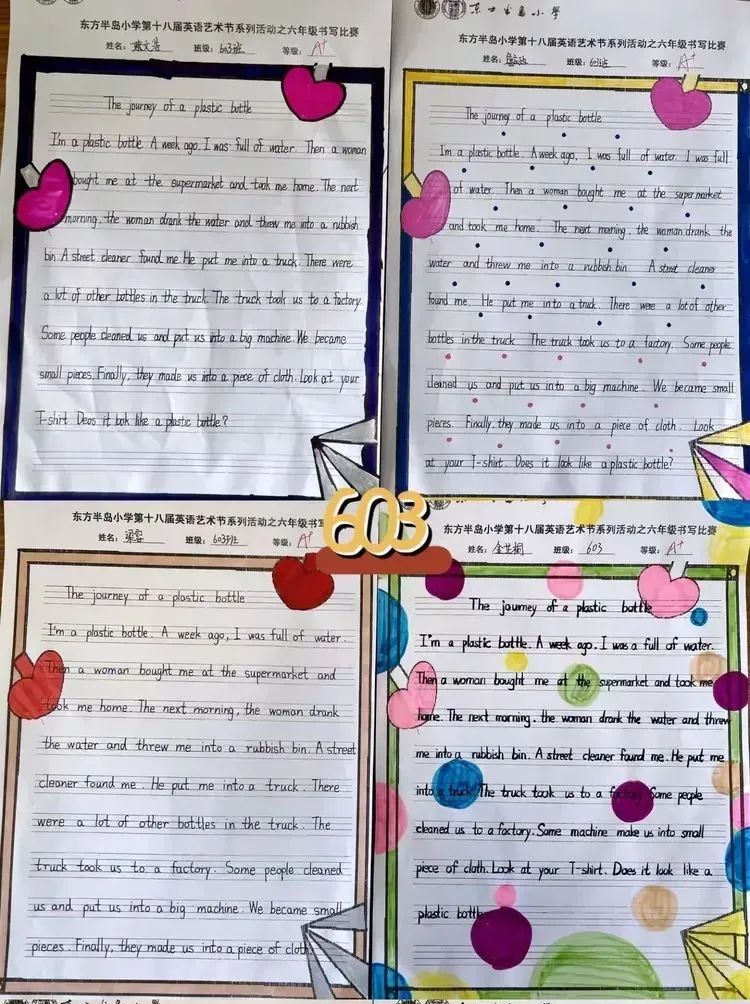 东方半岛小学第十八届英语艺术节系列活动之六年级书写比赛
姓名: 文浩 班级: 603班 等级: A+
The journey of a plastic bottle
I'm a plastic bottle. A week ago, I was full of water. Then a woman
bought me at the supermarket and took me home. The next
morning, the woman drank the water and threw me into a rubbish
bin. A street cleaner found me. He put me into a truck. There were
a lot of other bottles in the truck. The truck took us to a factory.
Some people cleaned us and put us into a big machine. We became
small pieces. Finally, they made us into a piece of cloth. Look at your
T-shirt. Deos it look like a plastic bottle?
东方半岛小學
东方半岛小学第十八届英语艺术节系列活动之六年级书写比赛
姓名: 班级: 603班 等级: A+
The journey of a plastic bottle
I'm a plastic bottle. A week ago, I was full of water. I was full
of water. Then a woman bought me at the supermarket
and took me home. The next morning, the woman drank the
water and threw me into a rubbish bin. A street cleaner
found me. He put me into a truck. There were a lot of other
bottles in the truck. The truck took us to a factory. Some people
cleaned us and put us into a big machine. We became small
pieces. Finally, they made us into a piece of cloth. Look
at your T-shirt. Does it look like a plastic bottle?
603
东方半岛小学第十八届英语艺术节系列活动之六年级书写
姓名: 梁容 班级: 603班 等级: A+
The journey of a plastic bottle
I'm a plastic bottle. A week ago, I was full of water.
Then a woman bought me at the supermarket and
took me home. The next morning, the woman drank
the water and threw me into a rubbish bin. A street
cleaner found me. He put me into a truck. There
were a lot of other bottles in the truck. The
truck took us to a factory. Some people cleaned
us and put us into a big machine. We became small
pieces. Finally, they made us into a piece of cloth.
东方半岛小学第十八届英语艺术节系列活动之六年级书写比赛
姓名: 金芷桐 班级: 603 等级: A+
The journey of a plastic bottle
I'm a plastic bottle. A week ago. I was a full of water.
Then a woman bought me at the supermarket and took me
home. The next morning, the woman drank the water and threw
me into a rubbish bin. A street cleaner found me. He put me
into a truck. The truck took us to a factory. Some people
cleaned us to a factory. Some machine make us into small
piece of cloth. Look at your T-shirt. Does it look like a
plastic bottle